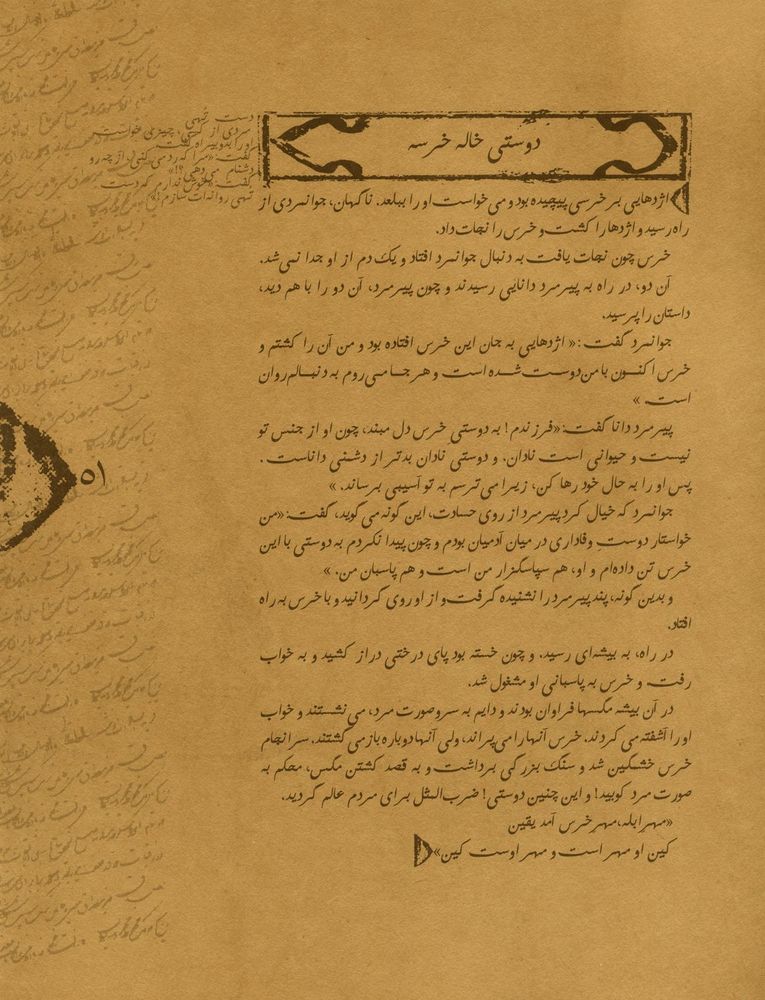 دوستی خاله خرسه
اژدهایی بر خرسی پیچیده بود و می‌خواست او را ببلعد. ناگهان، جوانمردی از
راه رسید و اژدها را کشت و خرس را نجات داد.
خرس چون نجات یافت به دنبال جوانمرد افتاد و یک دم از او جدا نمی‌شد.
آن دو، در راه به پیرمرد دانایی رسیدند و چون پیرمرد، آن دو را با هم دید،
داستان را پرسید.
جوانمرد گفت: «اژدهایی به جان این خرس افتاده بود و من آن را کشتم و
خرس اکنون با من دوست شده است و هر جا می‌روم به دنبالم روان
است.»
پیرمرد دانا گفت: «فرزندم! به دوستی خرس دل مبند، چون او از جنس تو
نیست و حیوانی است نادان، و دوستی نادان بدتر از دشمنی داناست.
پس او را به حال خود رها کن، زیرا می‌ترسم به تو آسیبی برساند.»
جوانمرد که خیال کرد پیرمرد از روی حسادت، این گونه می‌گوید، گفت: «من
خواستار دوست وفاداری در میان آدمیان بودم و چون پیدا نکردم به دوستی با این
خرس تن داده‌ام و او، هم سپاسگزار من است و هم پاسبان من.»
و بدین گونه، پند پیرمرد را نشنیده گرفت و از او روی گردانید و با خرس به راه
افتاد.
در راه، به بیشه‌ای رسید، و چون خسته بود پای درختی دراز کشید و به خواب
رفت. و خرس به پاسبانی او مشغول شد.
در آن بیشه مگسها فراوان بودند و دایم به سر و صورت مرد، می‌نشستند و خواب
او را آشفته می‌کردند. خرس آنها را می‌پراند، ولی آنها دوباره باز می‌گشتند. سرانجام
خرس خشمگین شد و سنگ بزرگی برداشت و به قصد کشتن مگس، محکم به
صورت مرد کوبید! و این چنین دوستی! ضرب‌المثل برای مردم عالم گردید.
«مهر ابله، مهر خرس آمد یقین
کین او مهر است و مهر اوست کین»
دست تهی
مردی از کسی، چیزی خواست.
او را بدوبیراه گفت.
گفت: «مرا که ردمی‌کنی از چه رو
دشنام می‌دهی؟!»
گفت: «خوش ندارم که دست
تهی روانه‌ات سازم!»
۵۱